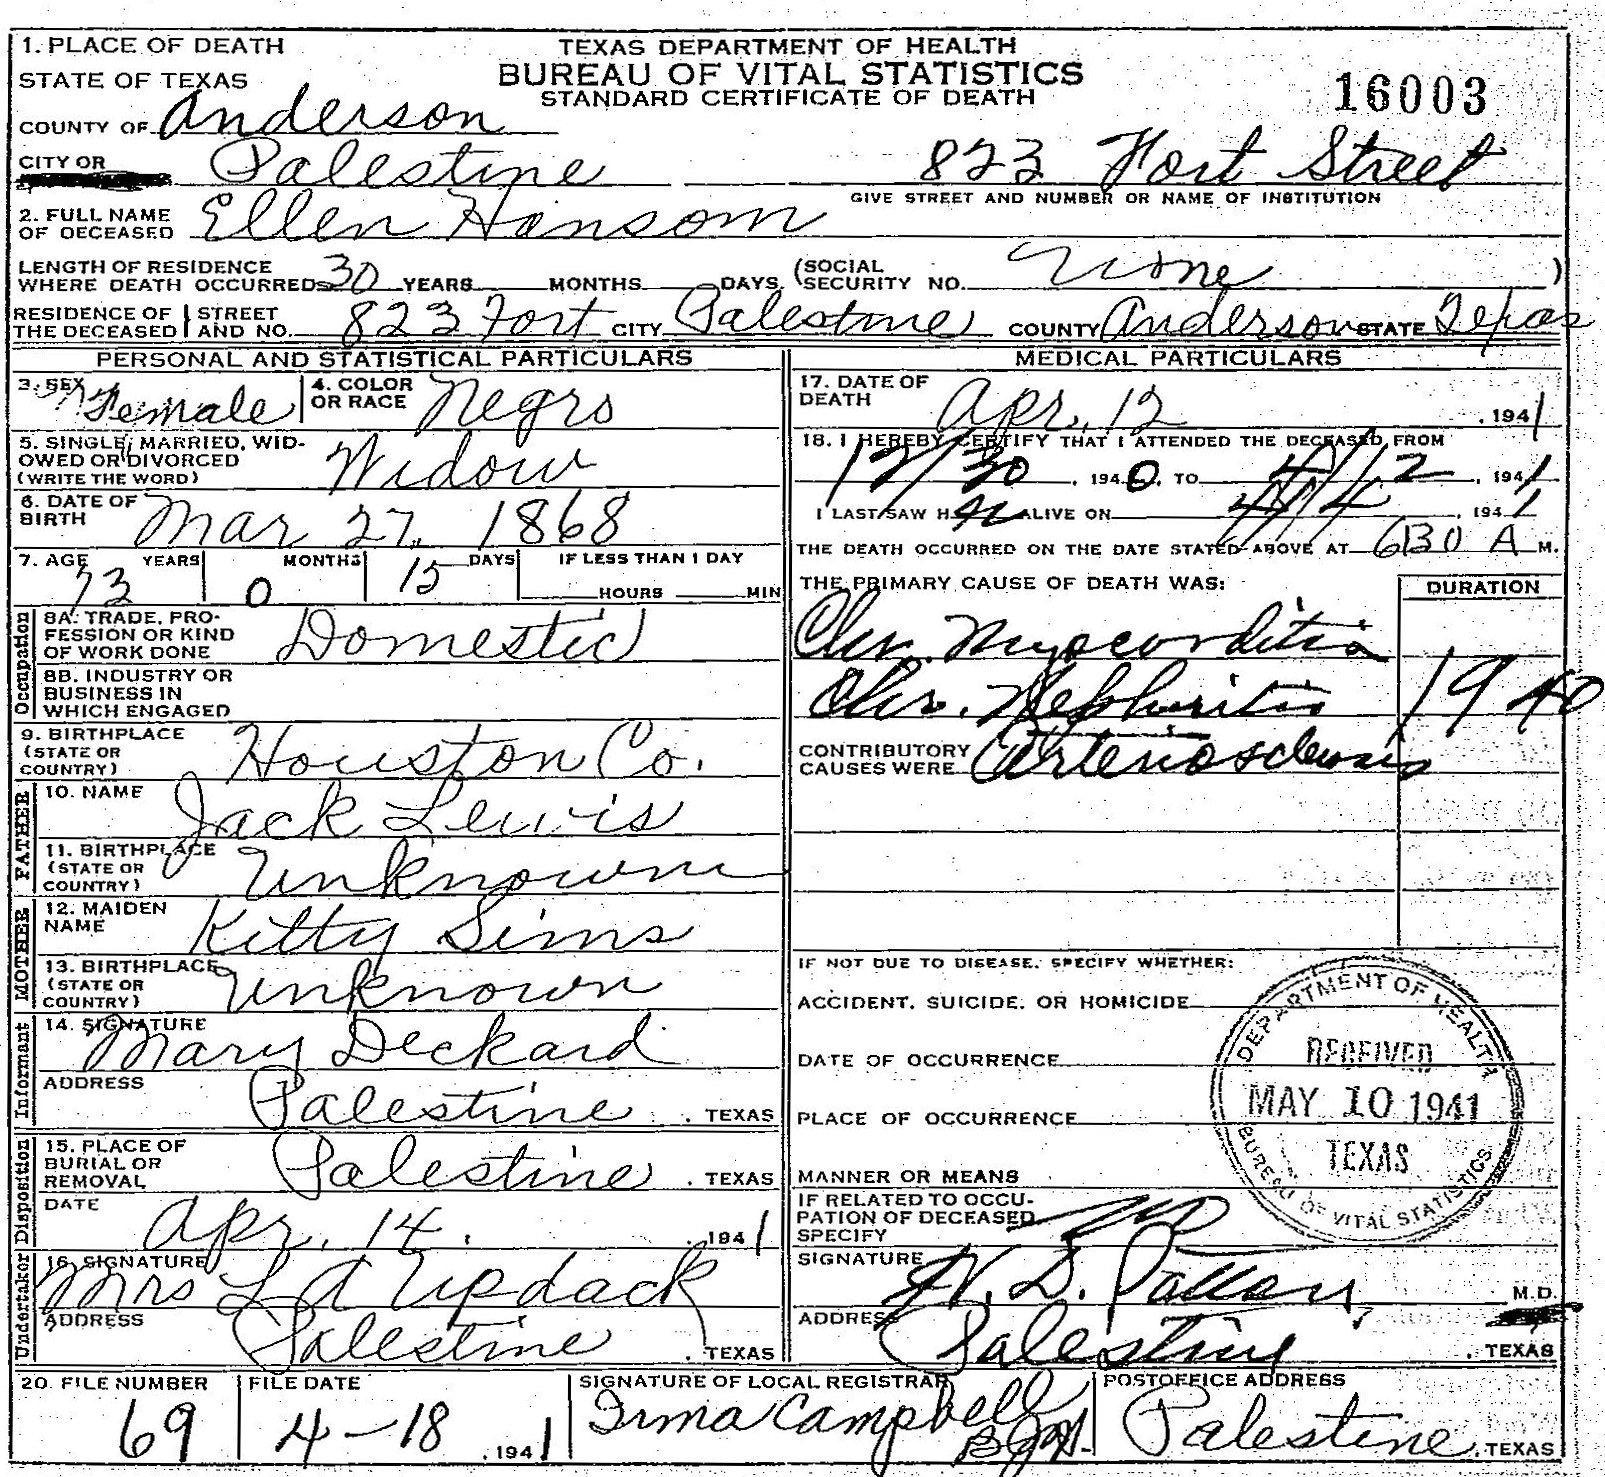 1. PLACE OF DEATH
TEXAS DEPARTMENT OF HEALTH
STATE OF TEXAS
BUREAU OF VITAL STATISTICS
STANDARD CERTIFICATE OF DEATH
16003
COUNTY OF Anderson
CITY OR Palestine 823 Fort Street
GIVE STREET AND NUMBER OR NAME OF INSTITUTION
2. FULL NAME OF DECEASED Ellen Hansom
LENGTH OF RESIDENCE WHERE DEATH OCCURRED 30 YEARS MONTHS DAYS (SOCIAL SECURITY NO. None )
RESIDENCE OF THE DECEASED STREET AND NO. 823 Fort CITY Palestine COUNTY Anderson STATE Texas
PERSONAL AND STATISTICAL PARTICULARS
3. SEX Female 4. COLOR OR RACE Negro
5. SINGLE, MARRIED, WIDOWED OR DIVORCED (WRITE THE WORD) Widow
6. DATE OF BIRTH Mar 27, 1868
7. AGE 73 YEARS 0 MONTHS 15 DAYS IF LESS THAN 1 DAY
HOURS MIN
Occupation
8A. TRADE, PROFESSION OR KIND OF WORK DONE Domestic
8B. INDUSTRY OR BUSINESS IN WHICH ENGAGED
9. BIRTHPLACE (STATE OR COUNTRY) Houston Co.
FATHER
10. NAME Jack Lewis
11. BIRTHPLACE (STATE OR COUNTRY) Unknown
MOTHER
12. MAIDEN NAME Kitty Sims
13. BIRTHPLACE (STATE OR COUNTRY) Unknown
Informant
14. SIGNATURE Mary Deckard
ADDRESS Palestine, TEXAS
Disposition
15. PLACE OF BURIAL OR REMOVAL Palestine, TEXAS
DATE Apr. 14, 1941
Undertaker
16. SIGNATURE Mrs L A Updack
ADDRESS Palestine, TEXAS
MEDICAL PARTICULARS
17. DATE OF DEATH Apr. 12, 1941
18. I HEREBY CERTIFY THAT I ATTENDED THE DECEASED FROM
12/30, 1940, TO 4/12, 1941
I LAST SAW H ALIVE ON 1941
THE DEATH OCCURRED ON THE DATE STATED ABOVE AT 6:30 A M.
THE PRIMARY CAUSE OF DEATH WAS: DURATION
Chr. Myocarditis
Chr. Nephritis 1940
CONTRIBUTORY CAUSES WERE Arteriosclerosis
IF NOT DUE TO DISEASE, SPECIFY WHETHER:
ACCIDENT, SUICIDE, OR HOMICIDE
DATE OF OCCURRENCE
PLACE OF OCCURRENCE
MANNER OR MEANS
IF RELATED TO OCCUPATION OF DECEASED SPECIFY
DEPARTMENT OF HEALTH
RECEIVED
MAY 10 1941
TEXAS
BUREAU OF VITAL STATISTICS
SIGNATURE M.D.
ADDRESS Palestine, TEXAS
20. FILE NUMBER 69
FILE DATE 4-18, 1941
SIGNATURE OF LOCAL REGISTRAR Irma Campbell
POSTOFFICE ADDRESS Palestine, TEXAS